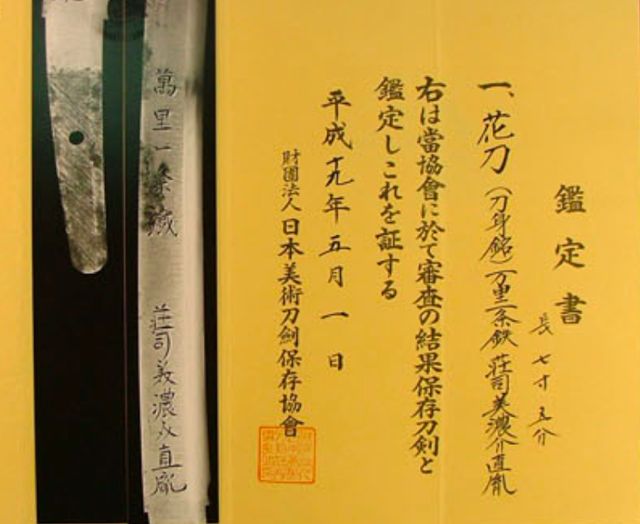 鑑定書
長七寸五分
一、花刀（刀身銘）万里一条鉄 荘司美濃介直胤
右は當協會に於て審査の結果保存刀剣と
鑑定しこれを証する
平成十九年五月一日
財團法人日本美術刀剣保存協會
萬里一条鐵
荘司美濃介直胤